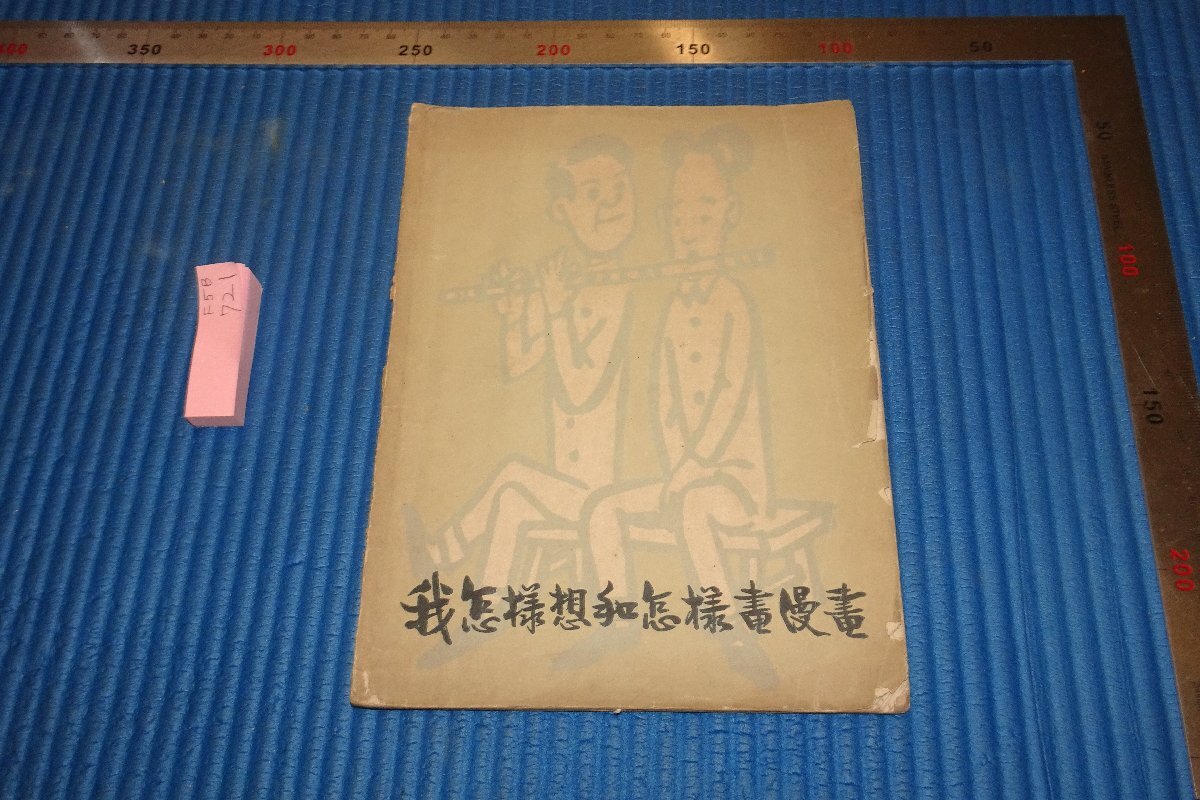 400 350 300 250 200 150 100 50
50
100
150
200
F5B
721
我怎樣想和怎樣畫漫畫